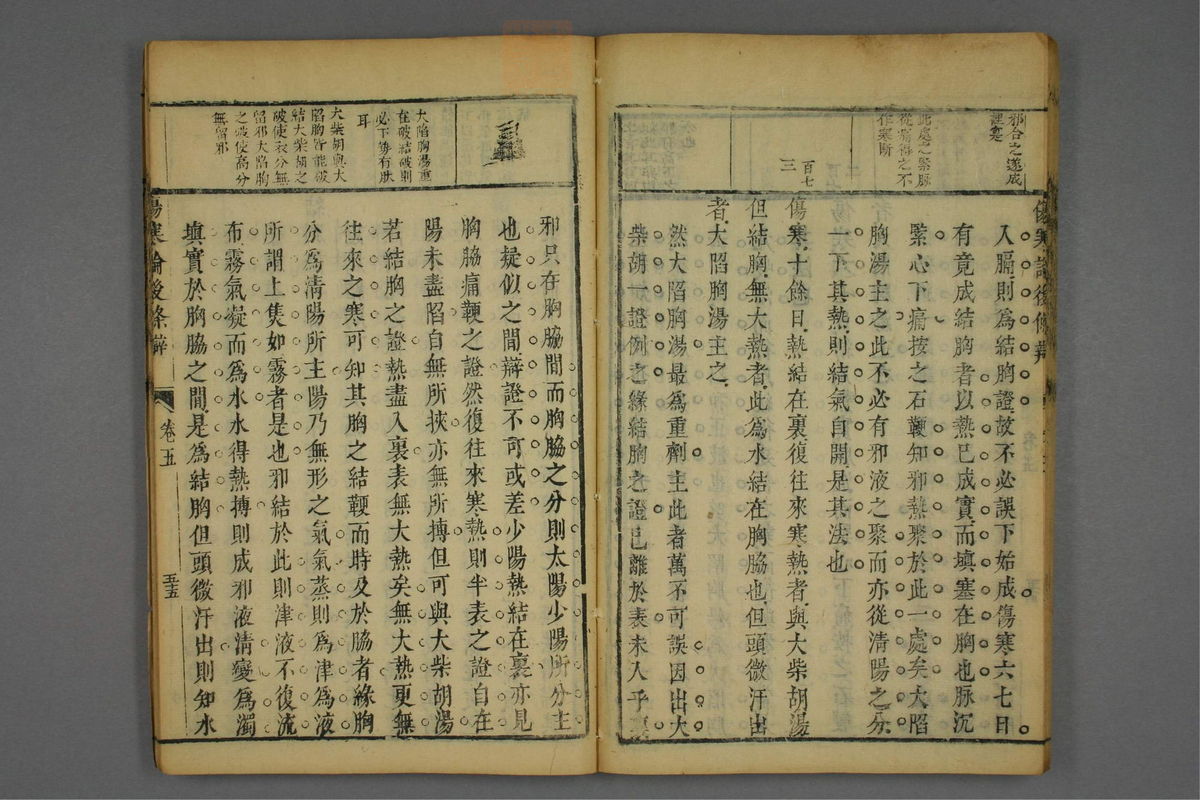 邪合之遂成
裡蹇
此處之緊脉
從痛得之不
作寒斷
百七
三
入膈則爲結胸證故不必誤下始成傷寒六七日
有竟成結胸者以熱已成實而填塞在胸也脉沉
緊心下痛按之石鞕知邪熱聚於此一處矣大陷
胸湯主之此不必有邪液之聚而亦從清陽之分
一下其熱則結氣自開是其法也
傷寒十餘日熱結在裏復往來寒熱者與大柴胡湯
但結胸無大熱者此爲水結在胸脇也但頭微汗出
者大陷胸湯主之
然大陷胸湯最爲重劑主此者萬不可誤因出大
柴胡一證例之緣結胸之證已離於表未入乎裏
大陷胸湯重
在破結破則
必下勢有肽
耳
大柴胡與大
陷胸皆能破
結大柴胡之
破使表分無
留邪大陷胸
之破使高分
無留邪
邪只在胸脇間而胸脇之分則太陽少陽所分主
也疑似之間辯證不可或差少陽熱結在裏亦見
胸脇痛鞕之證然復往來寒熱則半表之證自在
陽未盡陷自無所挾亦無所搏但可與大柴胡湯
若結胸之證熱盡入裏表無大熱矣無大熱更無
往來之寒可知其胸之結鞕而時及於脇者緣胸
分爲清陽所主陽乃無形之氣氣蒸則爲津爲液
所謂上焦如霧者是也邪結於此則津液不復流
布霧氣凝而爲水水得熱搏則成邪液清變爲濁
填實於胸脇之間是爲結胸但頭微汗出則知水
傷寒論後條辯
卷五
五五